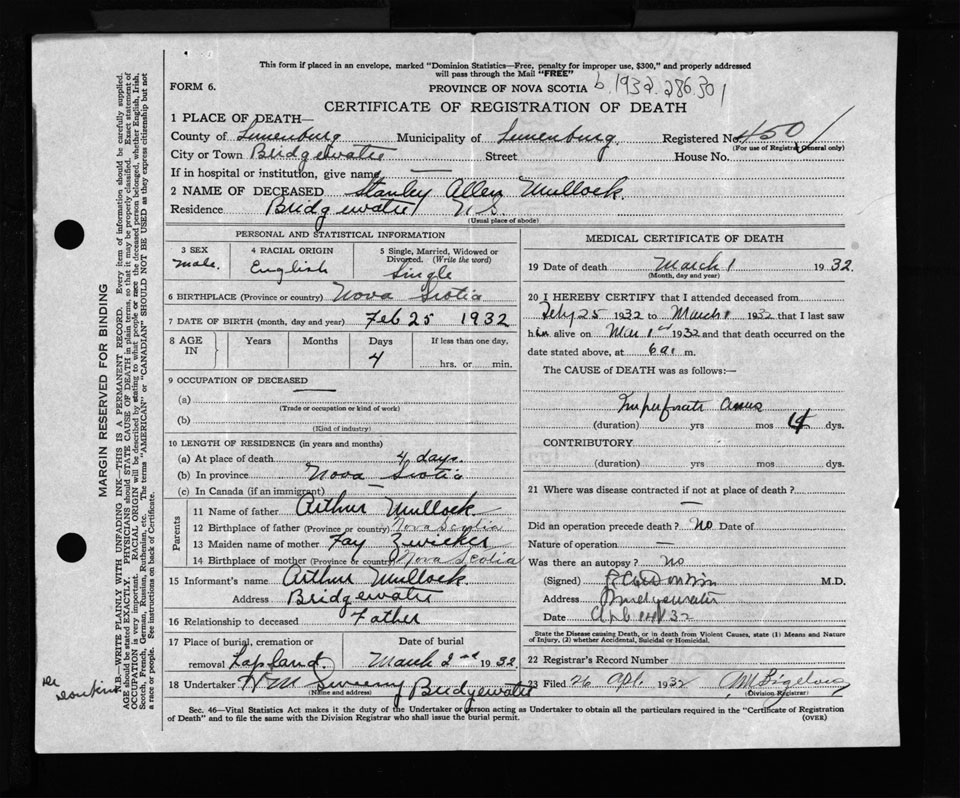 This form if placed in an envelope, marked "Dominion Statistics—Free, penalty for improper use, $300," and properly addressed
will pass through the Mail "FREE"
FORM 6.
PROVINCE OF NOVA SCOTIA b. 1932. 286301
CERTIFICATE OF REGISTRATION OF DEATH
1 PLACE OF DEATH—
County of Lunenburg Municipality of Lunenburg Registered No. 4501
(For use of Registrar General only)
City or Town Bridgewater Street House No.
If in hospital or institution, give name —
2 NAME OF DECEASED Stanley Allen Mullock.
Residence Bridgewater N.S.
(Usual place of abode)
PERSONAL AND STATISTICAL INFORMATION
3 SEX 4 RACIAL ORIGIN 5 Single, Married, Widowed or
Divorced. (Write the word)
male. English Single
6 BIRTHPLACE (Province or country) Nova Scotia
7 DATE OF BIRTH (month, day and year) Feb 25 1932
8 AGE IN Years Months Days If less than one day,
4 hrs. or min.
9 OCCUPATION OF DECEASED —
(a)
(Trade or occupation or kind of work)
(b)
(Kind of industry)
10 LENGTH OF RESIDENCE (in years and months)
(a) At place of death 4 days.
(b) In province Nova Scotia
(c) In Canada (if an immigrant) —
Parents
11 Name of father Arthur Mullock.
12 Birthplace of father (Province or country) Nova Scotia
13 Maiden name of mother Fay Zwicker
14 Birthplace of mother (Province or country) Nova Scotia
15 Informant's name Arthur Mullock.
Address Bridgewater
16 Relationship to deceased Father
17 Place of burial, cremation or Date of burial
removal Lapland. March 2nd 1932.
18 Undertaker Wm Sweeny Bridgewater
(Name and address)
MEDICAL CERTIFICATE OF DEATH
19 Date of death March 1 1932.
(Month, day and year)
20 I HEREBY CERTIFY that I attended deceased from
Feby 25 1932 to March 1 1932 that I last saw
him alive on Mar 1st 1932 and that death occurred on the
date stated above, at 6 a. m.
The CAUSE of DEATH was as follows:—
Imperforate Anus
(duration) yrs mos 4 dys.
CONTRIBUTORY
(duration) yrs mos. dys.
21 Where was disease contracted if not at place of death?
—
Did an operation precede death? No Date of
Nature of operation —
Was there an autopsy? No
(Signed) M.D.
Address Bridgewater
Date 32
State the Disease causing Death, or in death from Violent Causes, state (1) Means and Nature
of Injury, (2) whether Accidental, Suicidal or Homicidal.
22 Registrar's Record Number
23 Filed 26 Apl. 1932
(Division Registrar)
Sec. 46—Vital Statistics Act makes it the duty of the Undertaker or person acting as Undertaker to obtain all the particulars required in the "Certificate of Registration
of Death" and to file the same with the Division Registrar who shall issue the burial permit. (OVER)
MARGIN RESERVED FOR BINDING
N.B.—WRITE PLAINLY WITH UNFADING INK—THIS IS A PERMANENT RECORD. Every item of information should be carefully supplied.
AGE should be stated EXACTLY. PHYSICIANS should STATE CAUSE OF DEATH in plain terms, so that it may be properly classified. Exact statement of
OCCUPATION is very important. RACIAL ORIGIN will be described by stating to what people or race the deceased person belonged, whether English, Irish,
Scotch, French, German, Russian, Ruthenian, etc. The terms "AMERICAN" or "CANADIAN" SHOULD NOT BE USED as they express citizenship but not
a race or people. See instructions on back of Certificate.